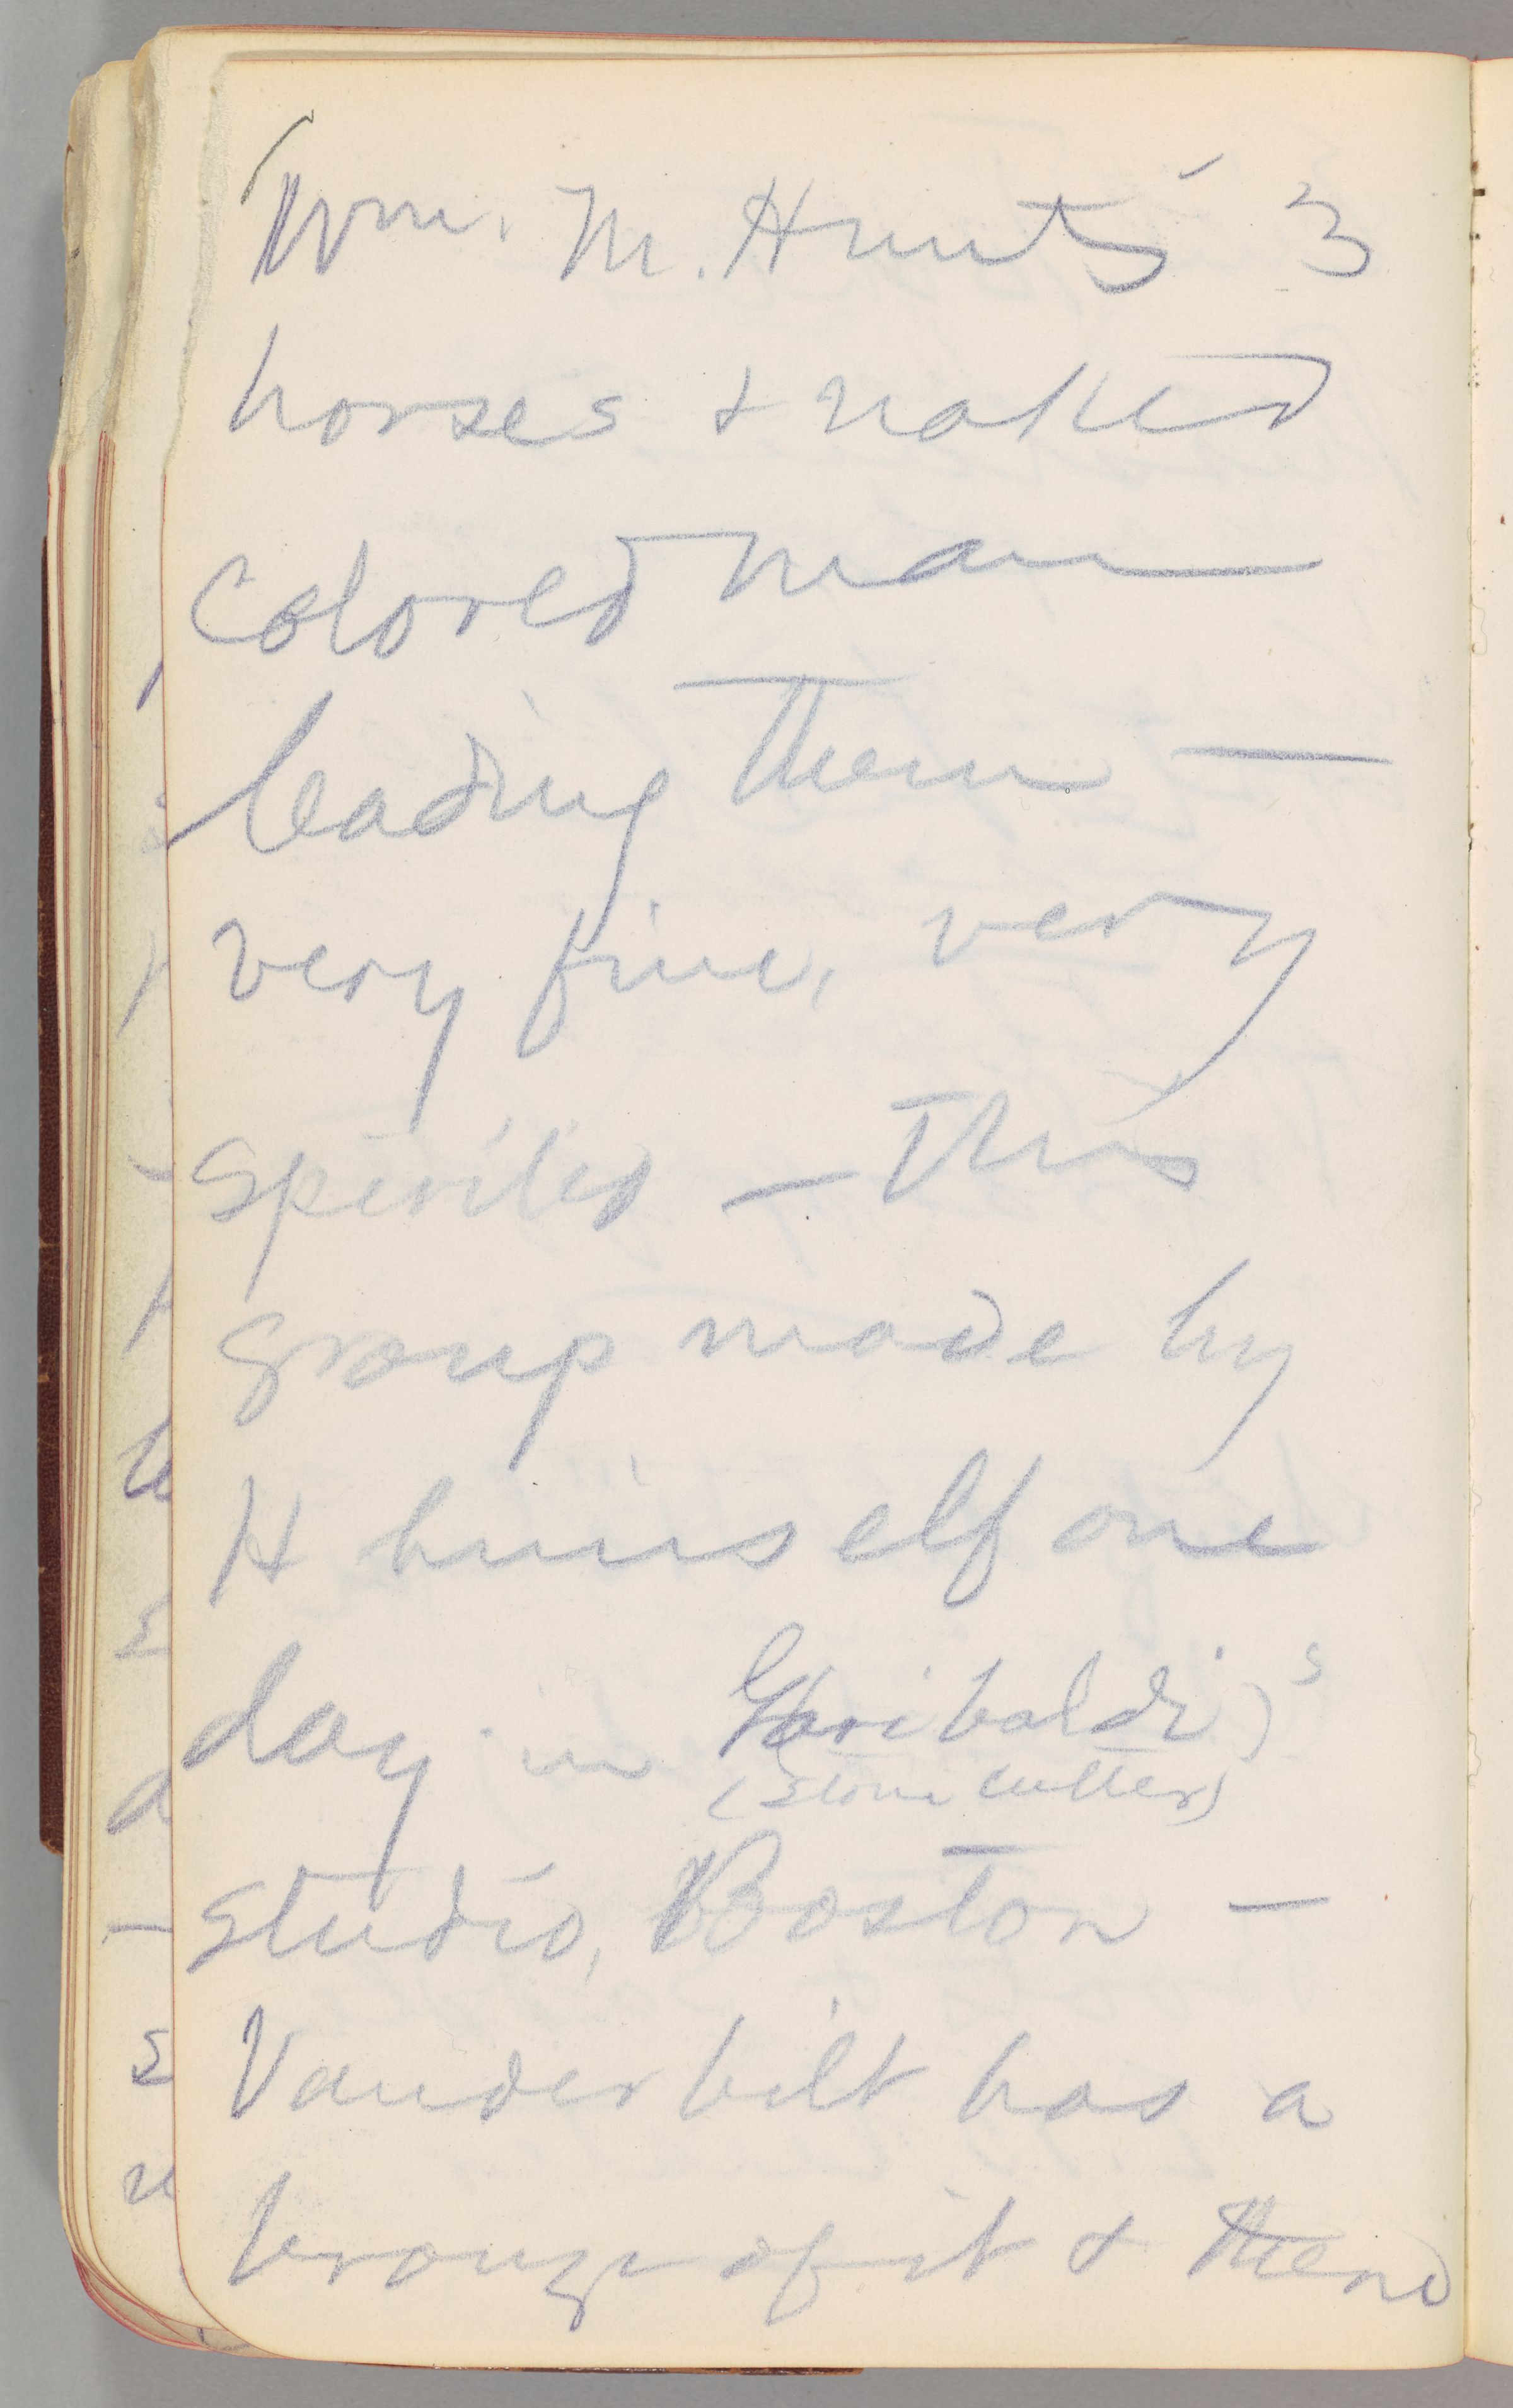 Wm. M. Hunt's 3
horses + naked
colored man
leading them —
very fine, very
spirited — This
group made by
H himself one
day in Garibaldi's
(stone cutter)
studio, Boston —
Vanderbilt has a
bronze of it + there